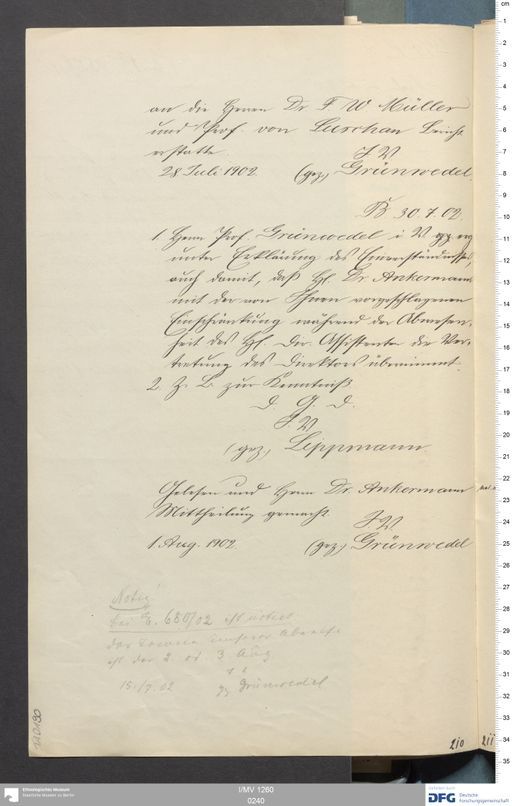 an die Herren Dr. F W Müller
und Prof. von Luschan Bericht
erstatte.
J. V
28 Juli 1902. (gez) Grünwedel.
B 30.7.02.
1. Herrn Prof. Grünwedel i V
unter Erklärung des Einverständnisses,
auch damit, daß Hl. Dr. Ankermann
mit der von Ihnen vorgeschlagenen
Einschränkung während der Abwesen-
heit des Hl. Dir. Assistenten die Ver-
tretung des Direktors übernimmt.
2. Z. B. zur Kenntniß
D. G. D.
J. V
(gez) Lippmann.
Gelesen und Herrn Dr. Ankermann
Mittheilung gemacht.
J. V
1. Aug. 1902. (gez) Grünwedel
Notiz!
bei E. 686/02 ist
der
ist der 2 od. 3 Aug
15./7.02 gz Grünwedel
210
211
Ethnologisches Museum
Staatliche Museen zu Berlin
I/MV 1260
0240
DFG Deutsche
Forschungsgemeinschaft